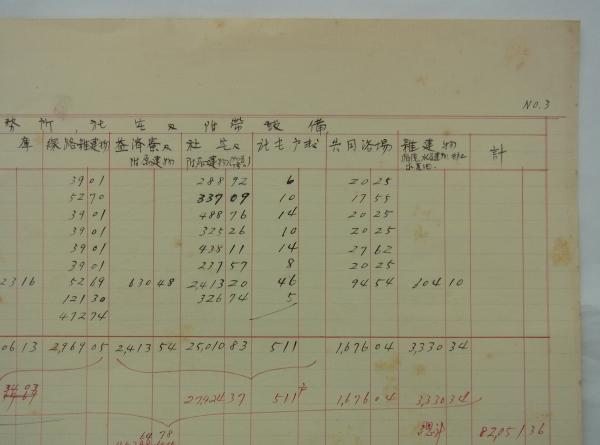 NO. 3
務所, 社宅及附帯設備
庫 線路雑建物 益済寮及附属建物 社宅及附属建物 社宅戸数 共同浴場 雑建物 計
39 01 288 92 6 20 25
52 70 337 09 10 17 55
39 01 488 76 14 20 25
39 01 325 26 10 20 25
39 01 438 11 14 27 62
39 01 237 57 8 20 25
23 16 52 69 630 48 2413 20 46 94 54 604 10
121 30 326 74 5
472 74
06 13 2,969 05 2,413 54 25,010 83 511 1,676 04 3,330 34
34 03
27,424 37 511 1,676 04 3,330 34
64 78
総計 82,051 36